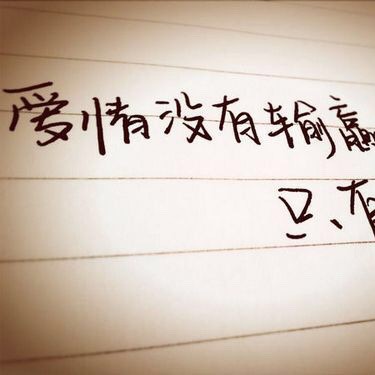 爱情没有输赢
只有